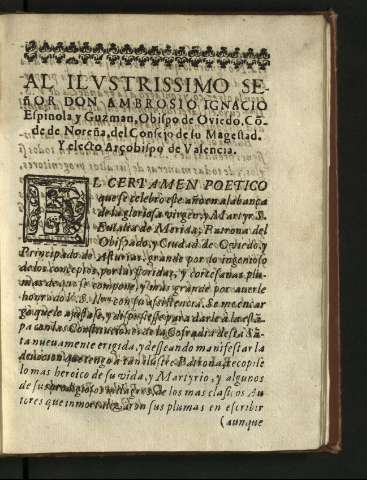 AL ILVSTRISSIMO SE-
ÑOR DON AMBROSIO IGNACIO
Espinola y Guzman, Obispo de Oviedo, Cō-
de de Noreña, del Consejo de su Magestad.
Y electo Arçobispo de Valencia.
EL CERTAMEN POETICO
que se celebro este año en alabança
de la gloriosa virgen, y Martyr S.
Eulalia de Merida; Patrona del
Obispado, y Ciudad de Oviedo, y
Principado de Asturias, grande por lo ingenioso
de los conceptos, por las floridas, y cortesanas plu-
mas de que se compone, y mas grande por averle
honrado V. S. Illma con su asistencia. Se me encar-
go que lo ajustase, y dispusiese para darle à la estā-
pa con las Constituciones de la Cofradia desta Sā-
ta nuevamente erigida, y deseando manifestar la
devocion que tengo a tan ilustre Patrona, recopile
lo mas heroico de su vida, y Martyrio, y algunos
de sus prodigiosos milagros, de los mas clasicos Au-
tores que inmortalizaron sus plumas en escribir
(aunque